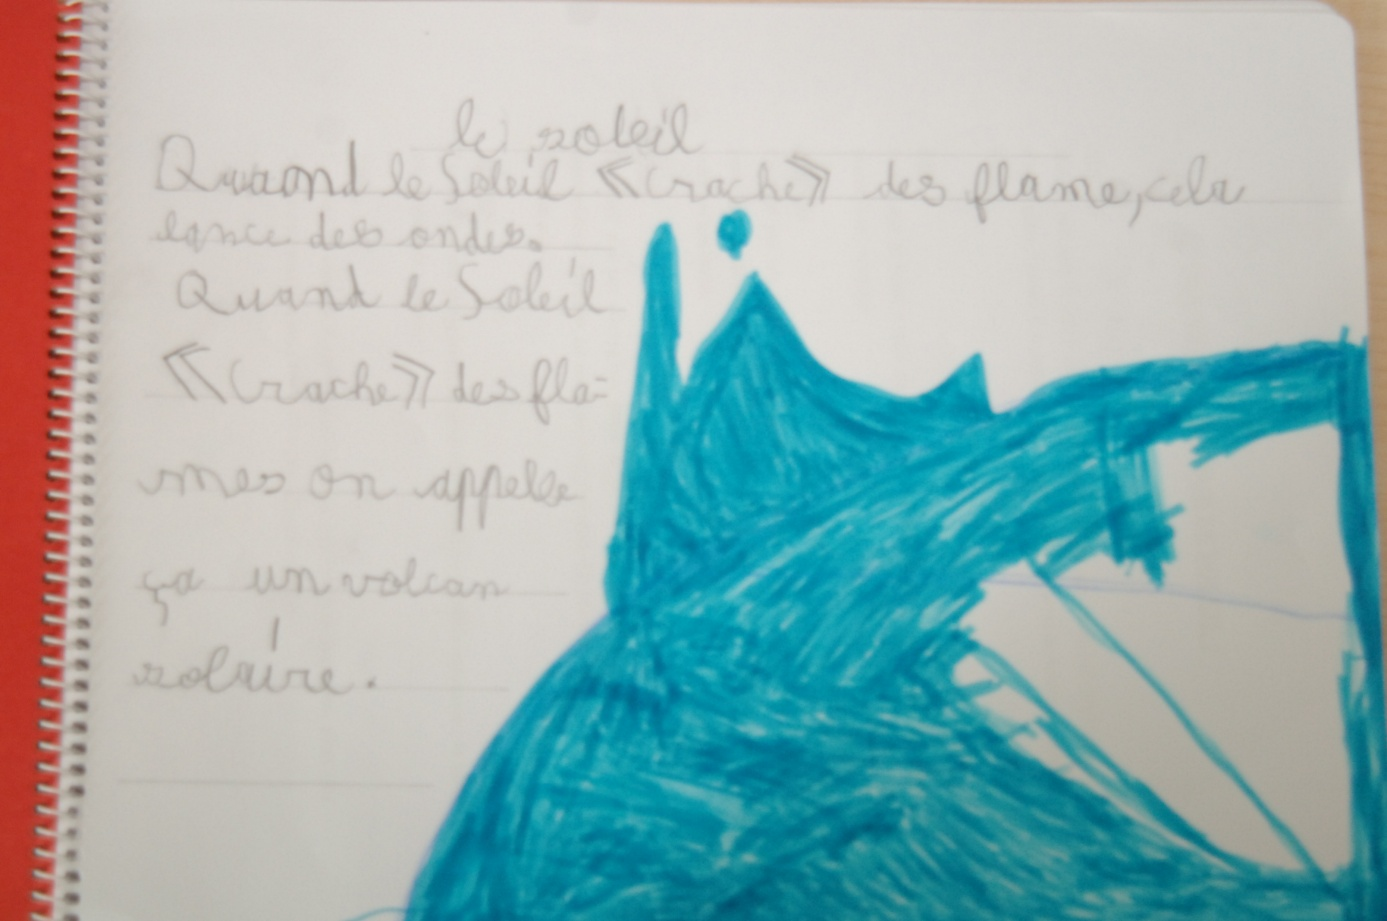 le soleil
Quand le Soleil «Crache» des flame, cela
lance des ondes.
Quand le Soleil
«Crache» des fla=
mes on appelle
ça un volcan
solaire.